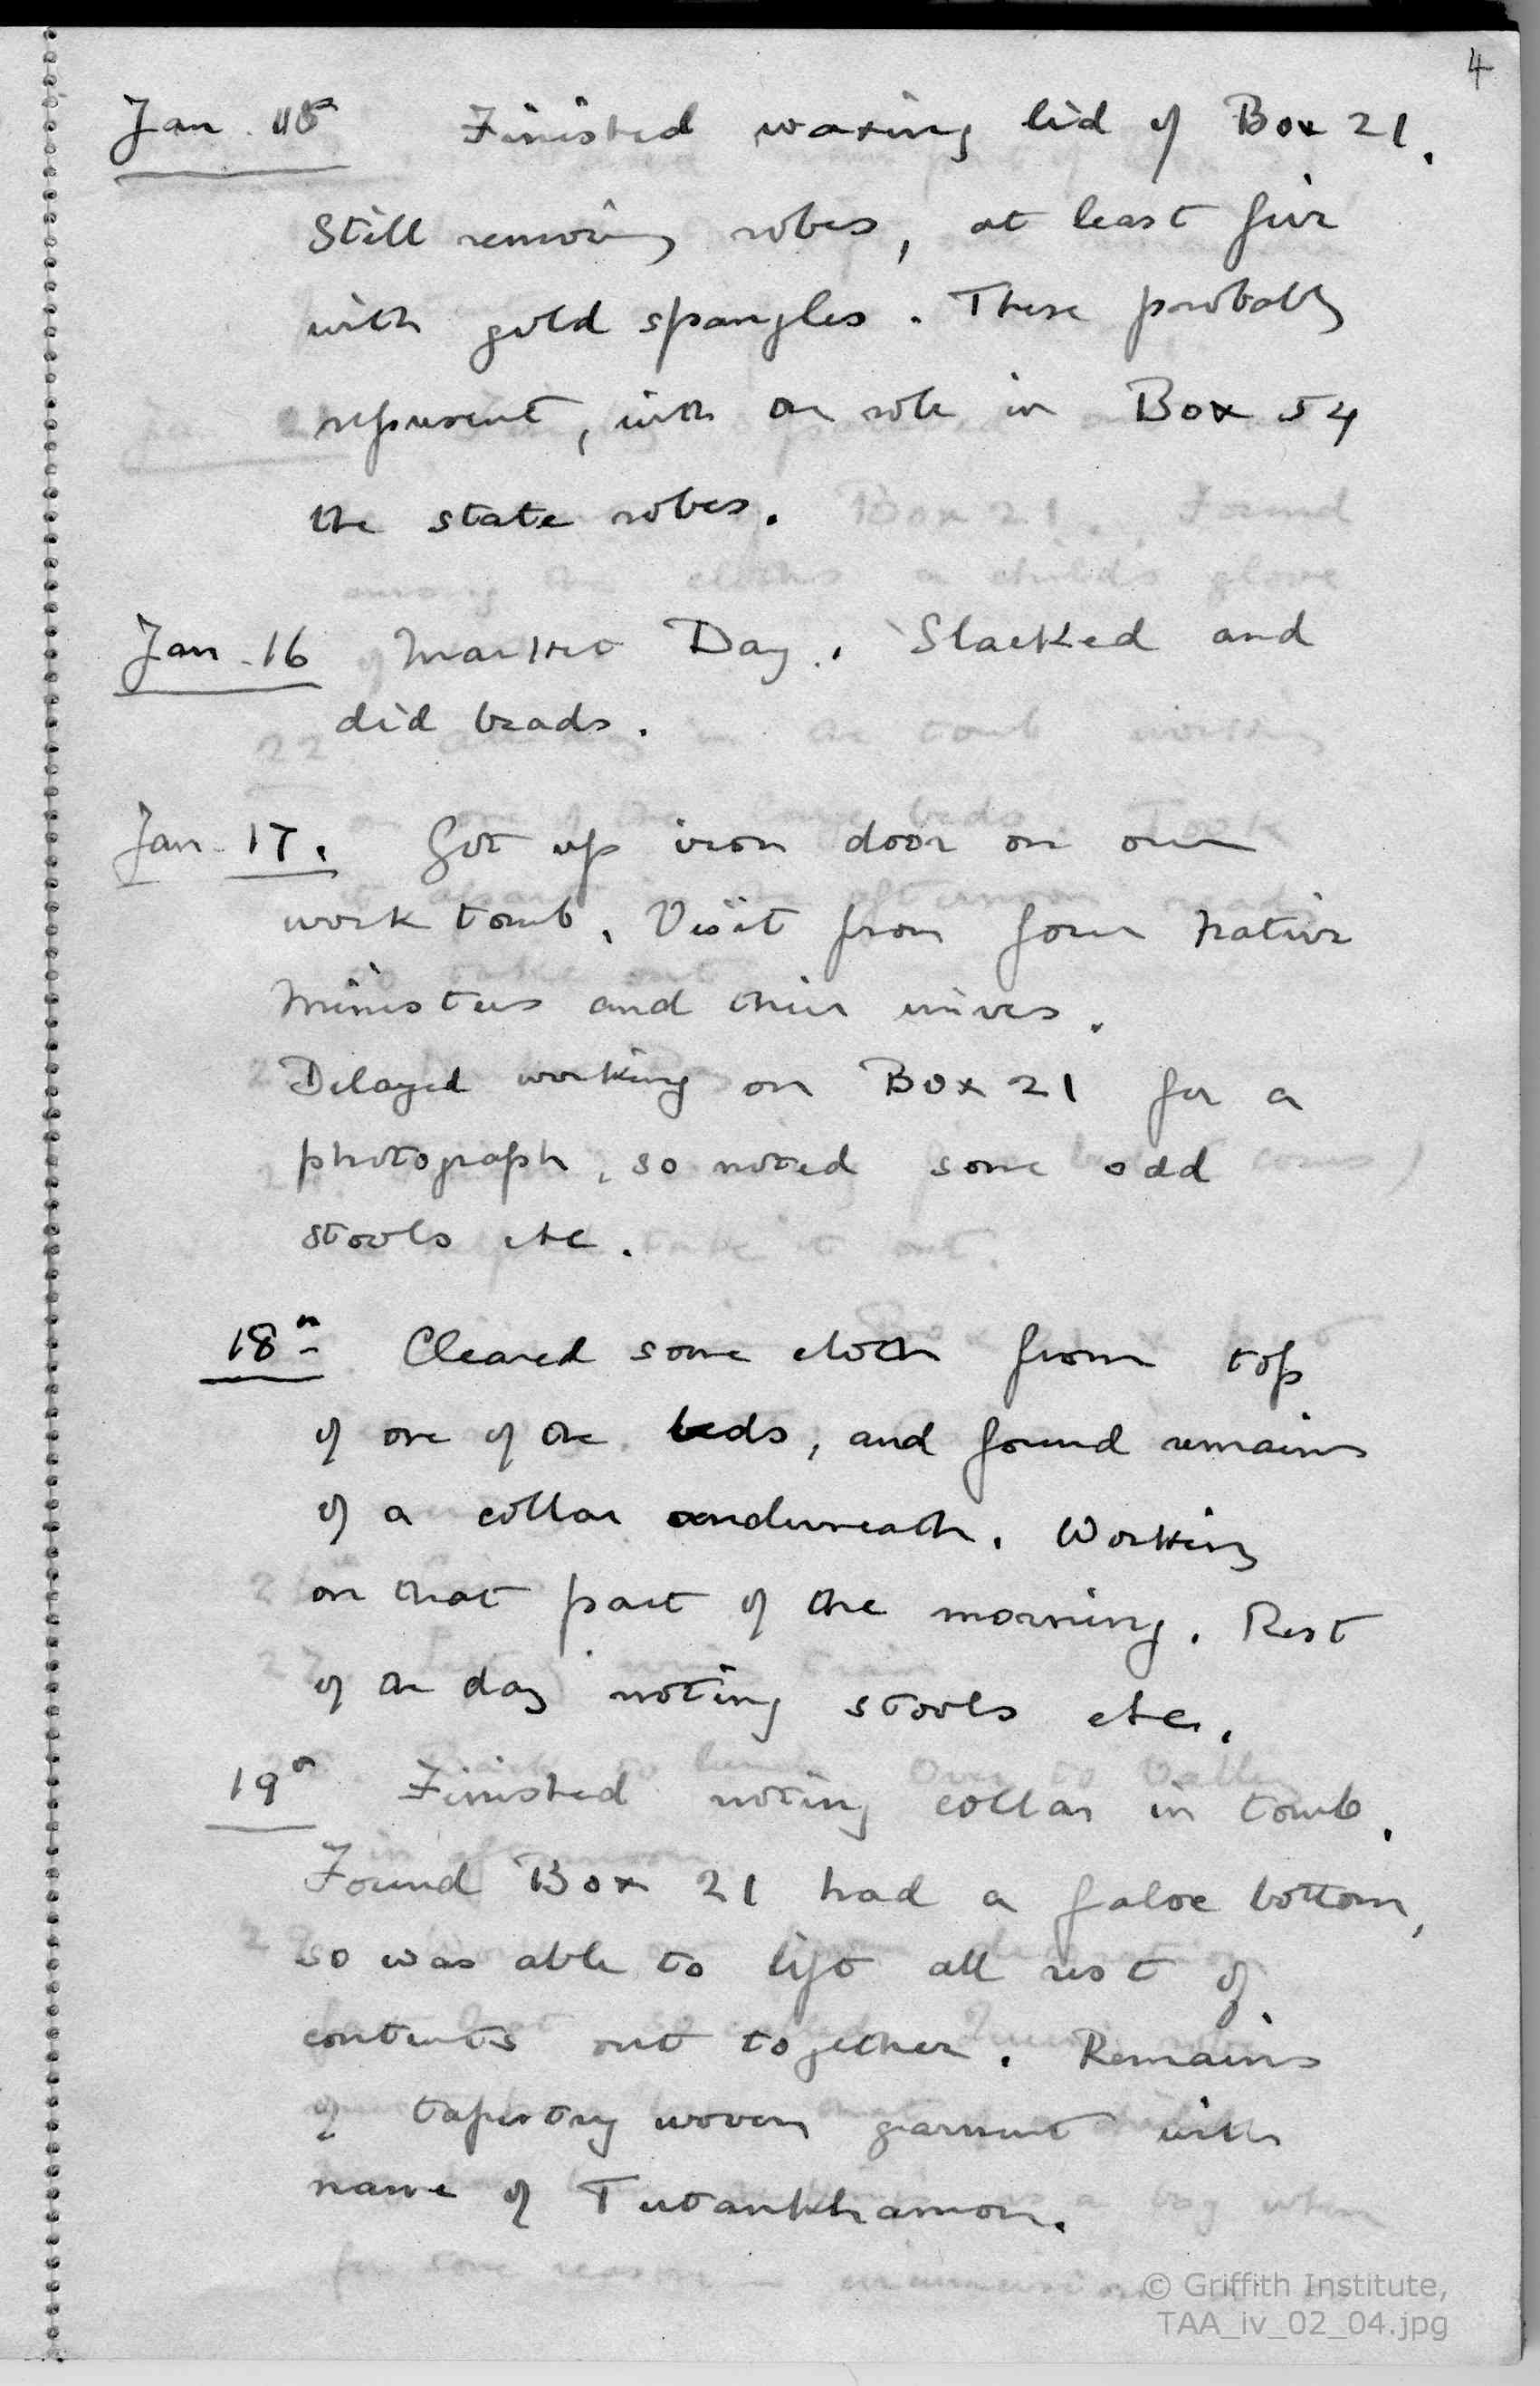 4
Jan. 15th Finished waxing lid of Box 21.
Still removing robes, at least five
with gold spangles. These probably
represent, with the robe in Box 54
the state robes.
Jan. 16 Market Day. Slacked and
did beads.
Jan. 17. Got up iron door on our
work tomb. Visit from four native
Ministers and their wives.
Delayed working on Box 21 for a
photograph, so noted some odd
stools etc.
18th Cleared some cloth from top
of one of the beds, and found remains
of a collar underneath. Working
on that part of the morning. Rest
of the day noting stools etc.
19th Finished noting collar in tomb.
Found Box 21 had a false bottom,
so was able to lift all rest of
contents out together. Remains
of tapestry woven garment with
name of Tutankhamon.
© Griffith Institute,
TAA_iv_02_04.jpg